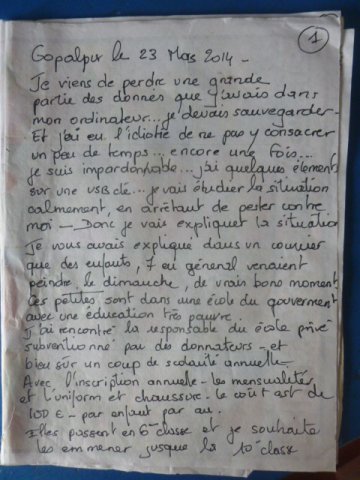 1
Gopalpur le 23 Mars 2014 -
Je viens de perdre une grande
partie des données que j'avais dans
mon ordinateur... je devais sauvegarder -
Et j'ai eu l'idiotie de ne pas y consacrer
un peu de temps... encore une fois...
je suis impardonnable... j'ai quelques elements
sur une USB clé... je vais étudier la situation
calmement, en arrêtant de pester contre
moi - Donc je vais expliquer la situation
Je vous avais expliqué dans un courrier
que des enfants, 7 en général venaient
peindre le dimanche, de vrais bons moments
Ces petites sont dans une école du gouverment
avec une éducation très pauvre.
J'ai rencontré la responsable du école privé
subventionné par des donnateurs - et
bien sûr un coup de scolarité annuelle
Avec l'inscription annuelle - les mensualités
et l'uniform et chaussure - le coût est de
100 € - par enfant par an.
Elles passent en 6e classe et je souhaite
les emmener jusque la 10e classe